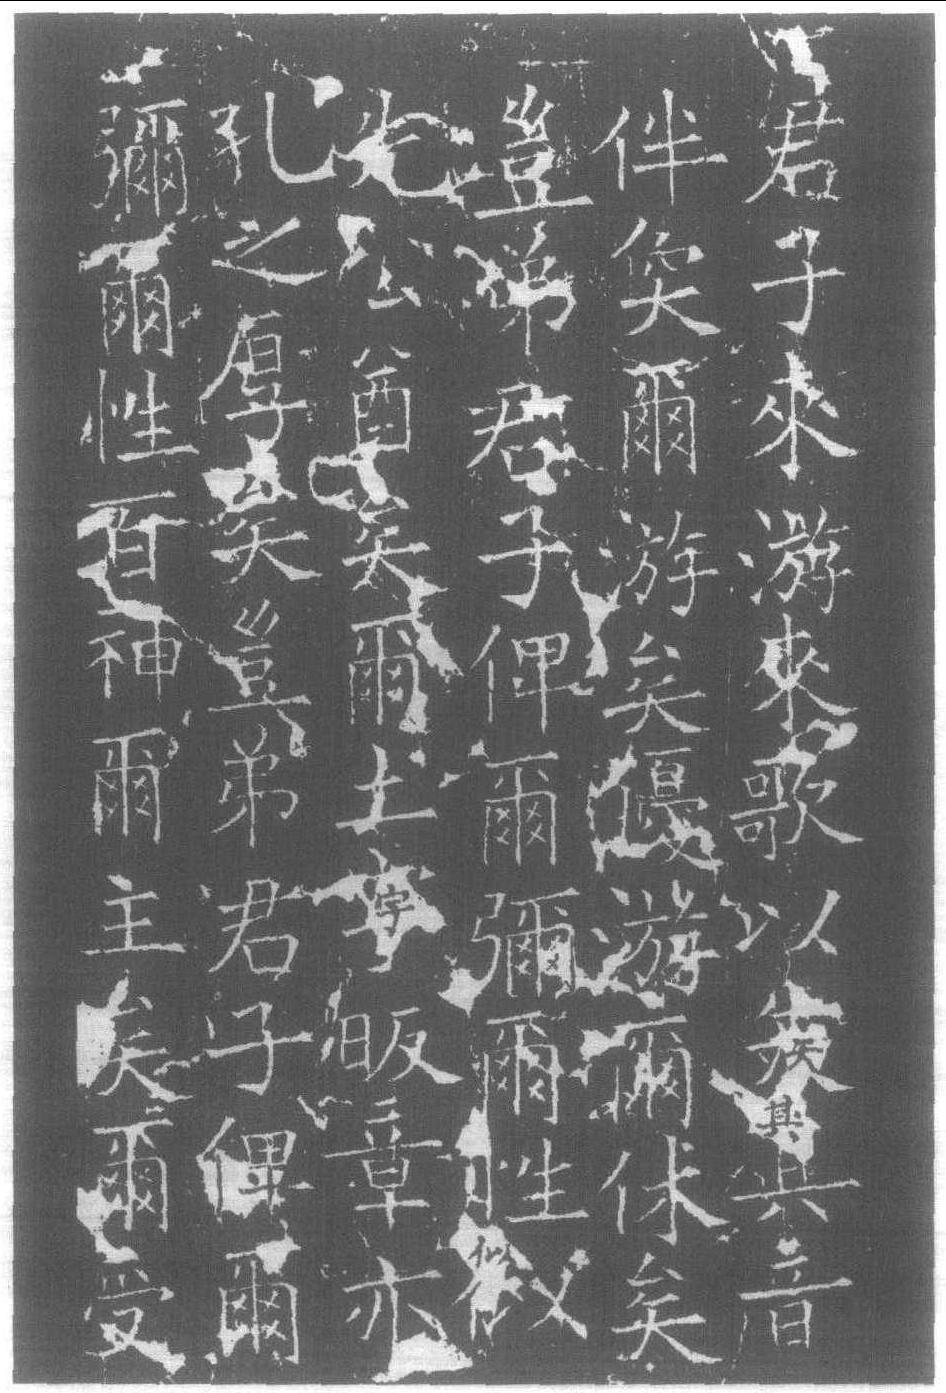 君子來游來歌以矢其音
伴奐爾游矣優游爾休矣
豈弟君子俾爾彌爾性似
先公酋矣爾土宇昄章亦
孔之厚矣豈弟君子俾爾
彌爾性百神爾主矣爾受